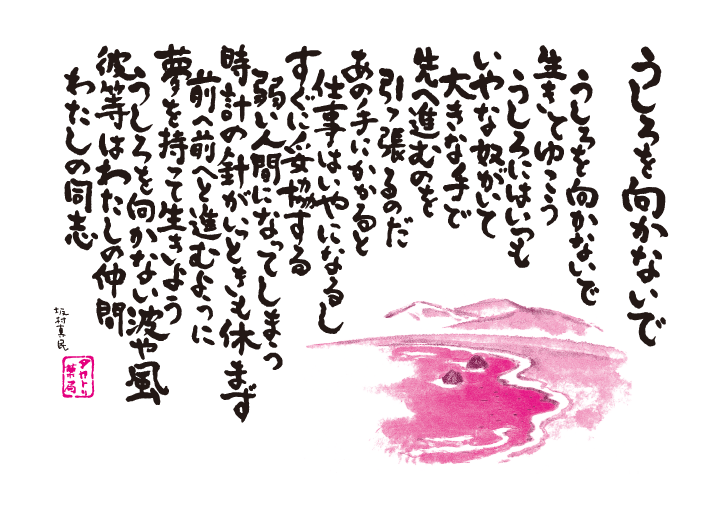 うしろを向かないで
うしろを向かないで
生きてゆこう
うしろにはいつも
いやな奴がいて
大きな手で
先へ進むのを
引っ張るのだ
あの手にかかると
仕事はいやになるし
すぐに妥協する
弱い人間になってしまう
時計の針がいっときも休まず
前へ前へと進むように
夢を持って生きよう
うしろを向かない波や風
彼等はわたしの仲間
わたしの同志
坂村真民
タカトリ
薬局